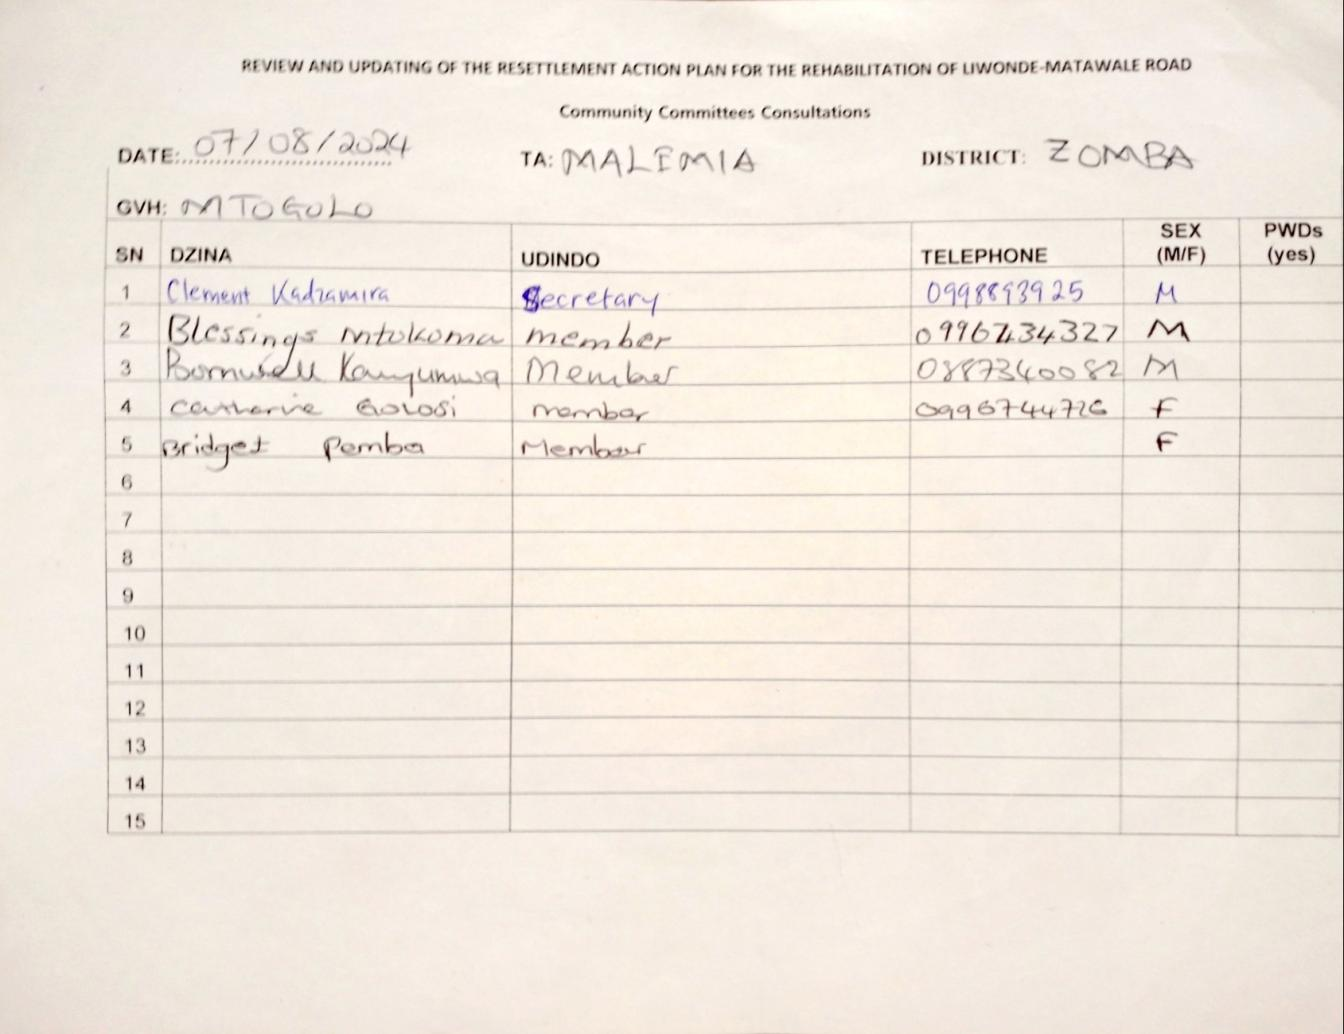 REVIEW AND UPDATING OF THE RESETTLEMENT ACTION PLAN FOR THE REHABILITATION OF LIWONDE-MATAWALE ROAD
Community Committees Consultations
DATE: 07/08/2024 TA: MALEMIA DISTRICT: ZOMBA
GVH: MTOGOLO
SN DZINA UDINDO TELEPHONE SEX (M/F) PWDs (yes)
1 Clement Kadzamira Secretary 0998893925 M
2 Blessings Mtokoma member M
3 Member 0887340082 M
4 Catharine Golosi member 0996744726 F
5 Bridget Pemba Member F
6
7
8
9
10
11
12
13
14
15